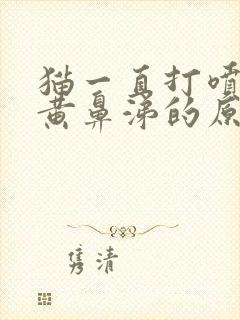 猫一直打喷
黄鼻涕的原
隽清